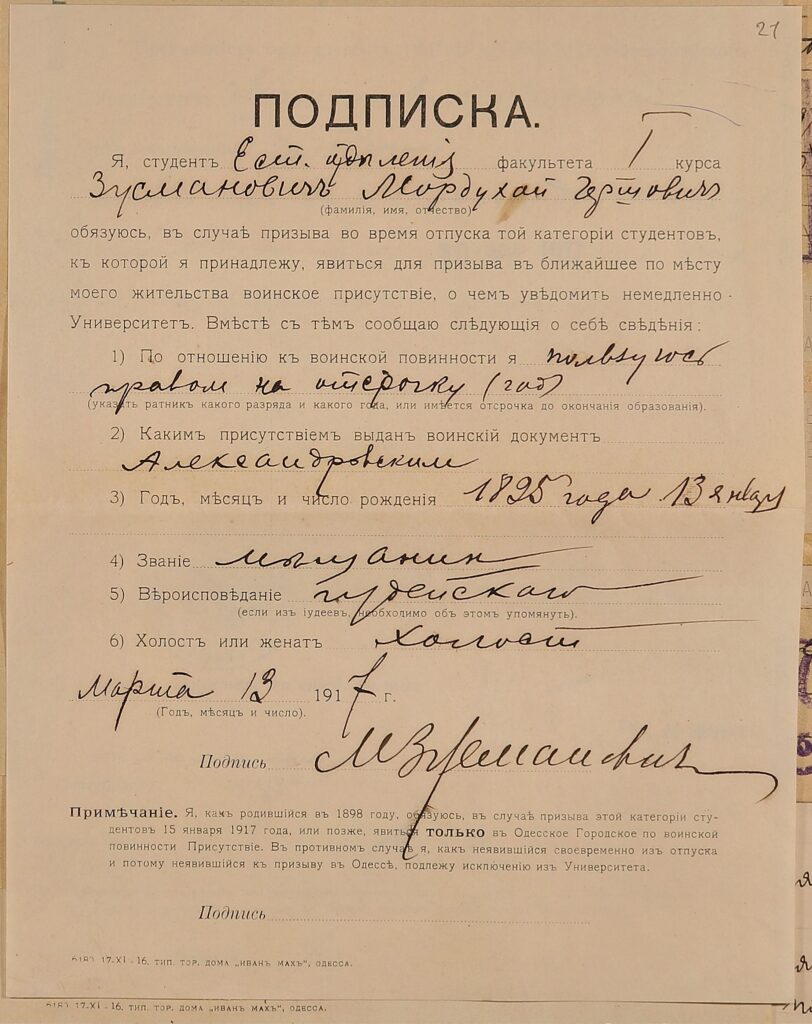 21
ПОДПИСКА.
Я, студентъ Ест. отдѣленія факультета I курса
Зусмановичъ Мордухай Гертовичъ
(фамилія, имя, отчество)
обязуюсь, въ случаѣ призыва во время отпуска той категоріи студентовъ,
къ которой я принадлежу, явиться для призыва въ ближайшее по мѣсту
моего жительства воинское присутствіе, о чемъ увѣдомить немедленно
Университетъ. Вмѣстѣ съ тѣмъ сообщаю слѣдующія о себѣ свѣдѣнія:
1) По отношенію къ воинской повинности я пользуюсь
правом на отсрочку (год)
(указать ратникъ какого разряда и какого года, или имѣется отсрочка до окончанія образованія).
2) Какимъ присутствіемъ выданъ воинскій документъ
Александровским
3) Годъ, мѣсяцъ и число рожденія 1895 года 13 января
4) Званіе мѣщанин
5) Вѣроисповѣданіе іудейскаго
(если изъ іудеевъ, необходимо объ этомъ упомянуть).
6) Холостъ или женатъ холост
Марта 13 1917 г.
(Годъ, мѣсяцъ и число).
Подпись М Зусманович
Примѣчаніе. Я, какъ родившійся въ 1898 году, обязуюсь, въ случаѣ призыва этой категоріи сту-
дентовъ 15 января 1917 года, или позже, явиться ТОЛЬКО въ Одесское Городское по воинской
повинности Присутствіе. Въ противномъ случаѣ я, какъ неявившійся своевременно изъ отпуска
и потому неявившійся къ призыву въ Одессѣ, подлежу исключенію изъ Университета.
Подпись
17.XI - 16. ТИП. ТОР. ДОМА „ИВАНЪ МАХЪ", ОДЕССА.
17.XI - 16. ТИП. ТОР. ДОМА „ИВАНЪ МАХЪ", ОДЕССА.